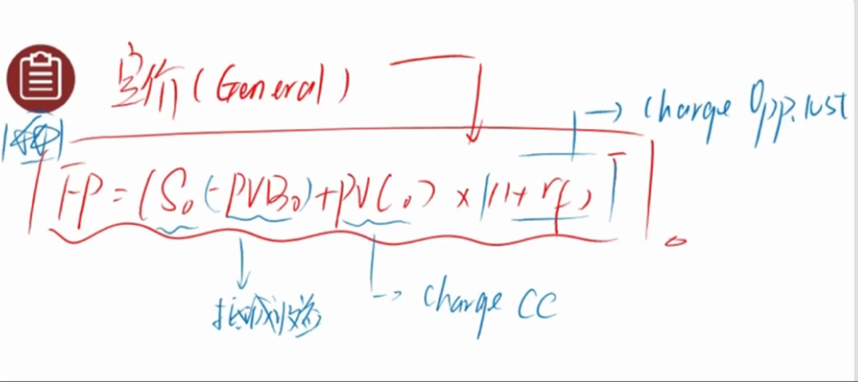 定价(General)
→ charge Opp. cost
FP = (S₀(-PVB₀)+PVC₀) × (1+rf)ᵀ
抵减收益
→ charge CC